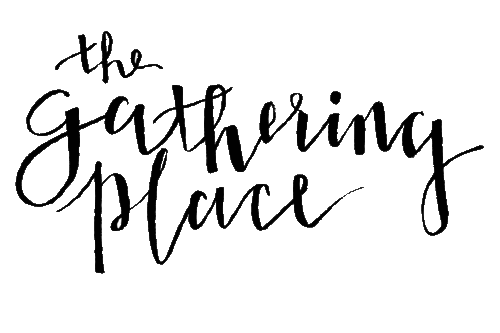 the
gathering
place